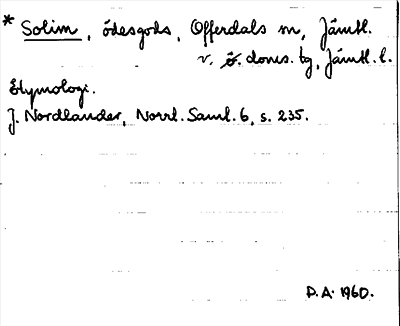 * Solim, ödesgods, Offerdals sn, Jämtl.
v. doms. tg, Jämtl. l.
Etymologi.
J. Nordlander, Norrl. Saml. 6, s. 235.
P.A. 1960.